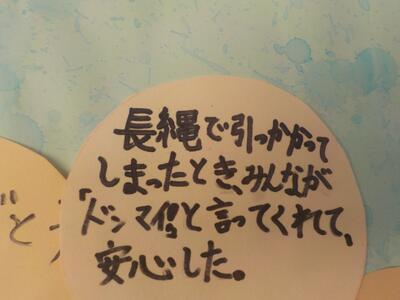 長縄で引っかかって
しまったとき、みんなが
「ドンマイ!!」と言ってくれて、
安心した。
ど と